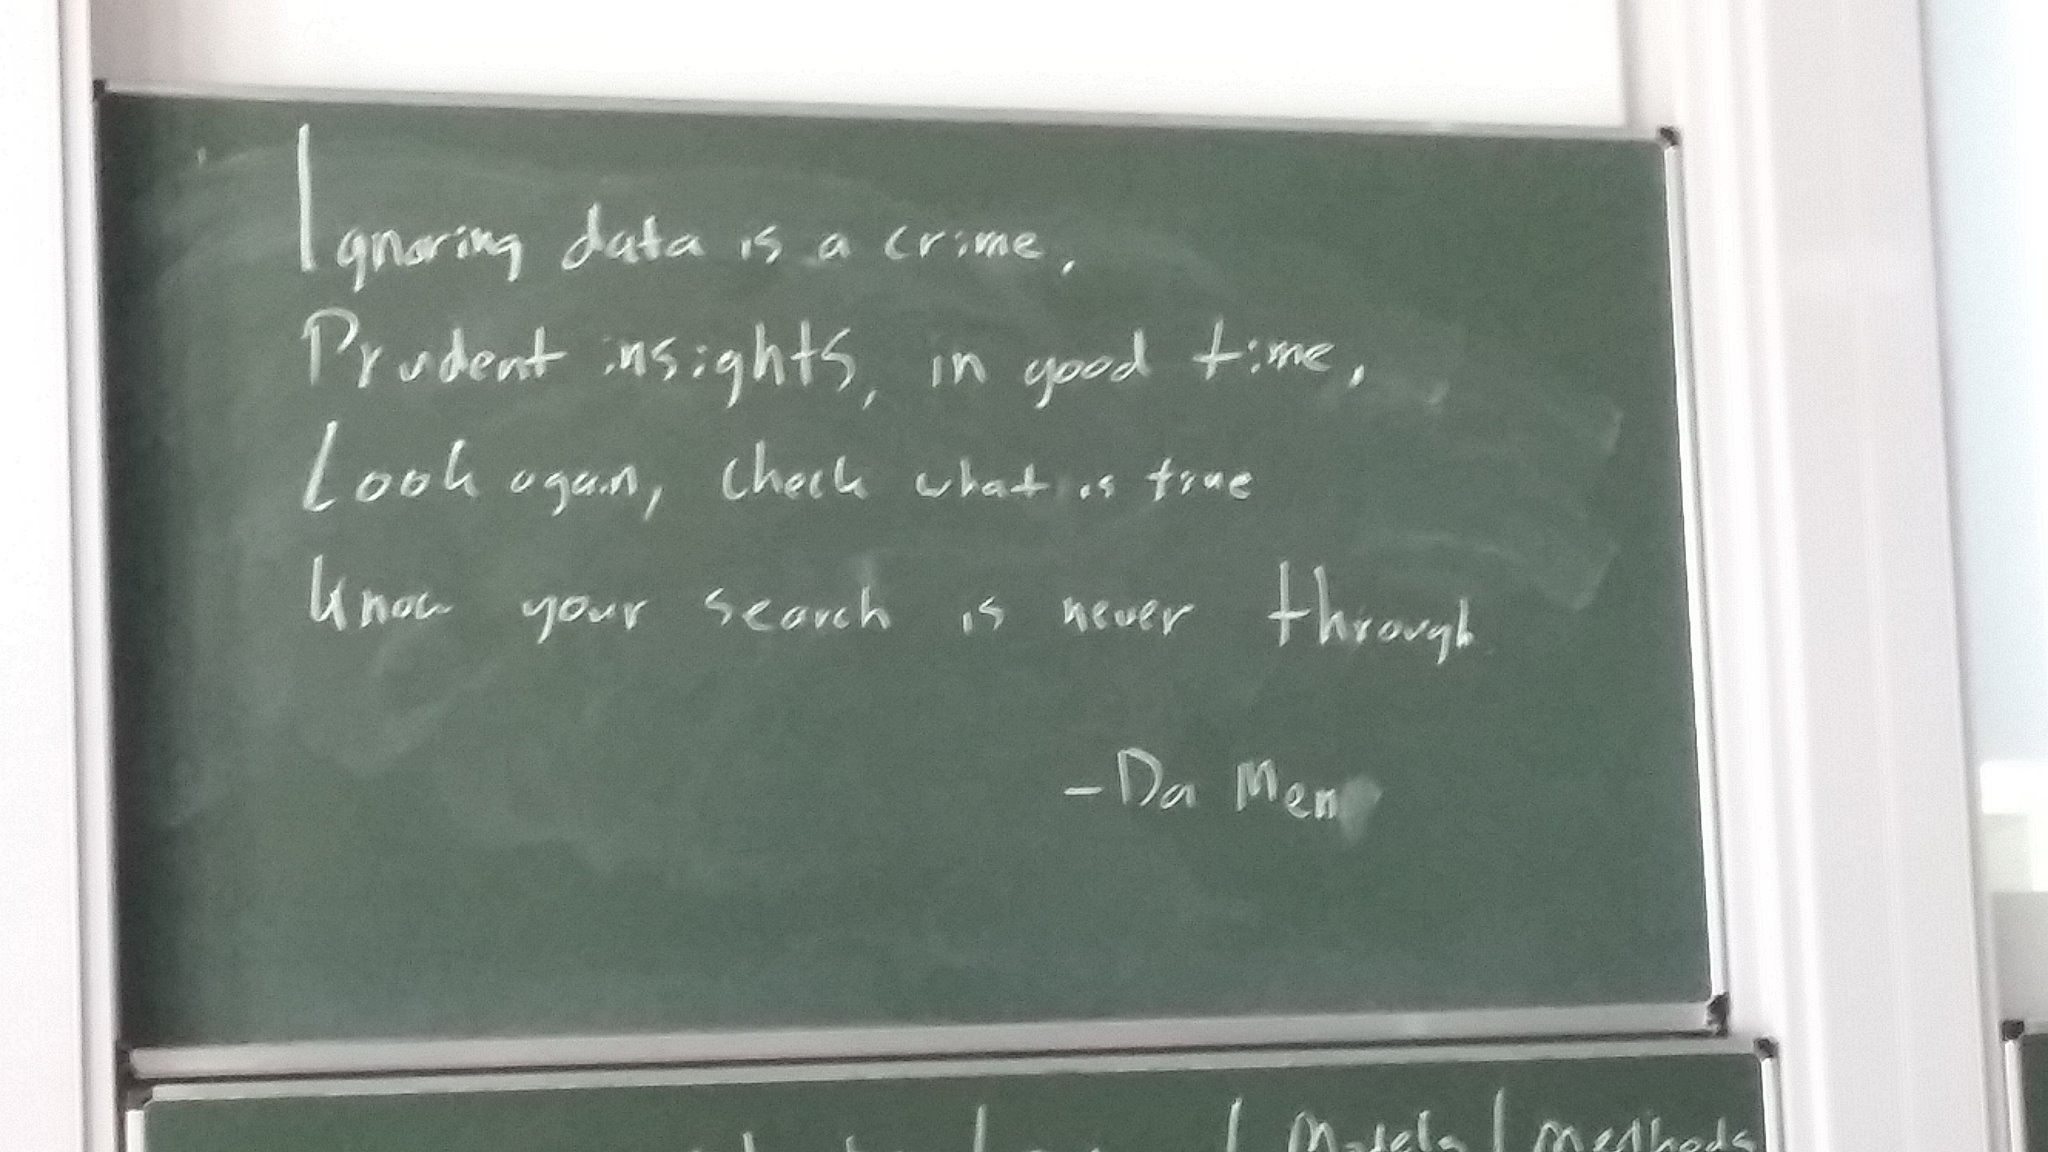 Ignoring data is a crime,
Prudent insights, in good time,
Look again, check what is true
Know your search is never through.
- Da Men
Models / Methods